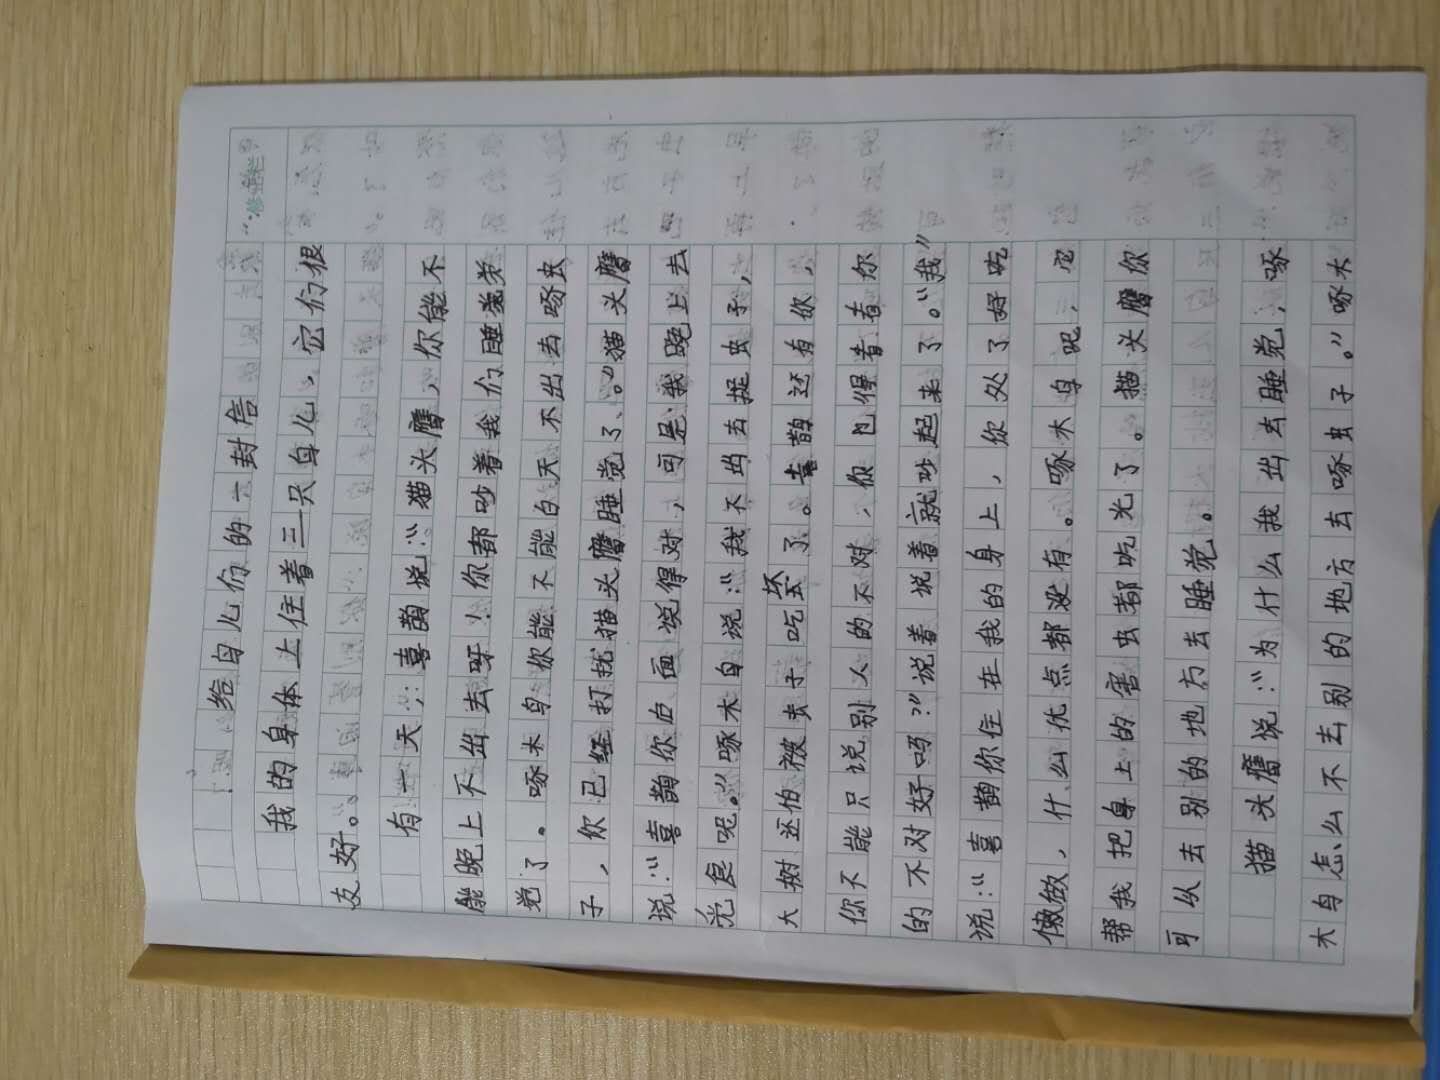 给鸟儿们的一封信
"修正栏"
我的身体上住着三只鸟儿,它们很
友好。
有一天,喜鹊说:"猫头鹰,你能不
能晚上不出去呀!你都吵着我们睡觉
觉了。啄木鸟你能不能白天不出去啄虫
子,你已经打扰猫头鹰睡觉了。"猫头鹰
说:"喜鹊你白面说得对,可是我晚上去
觉食呢。"啄木鸟说:"我不出去捉虫子,
大树还怕被虫子吃坏了。喜鹊还有你,
你不能只说别人的不对,你也得看看你
的不对好吗?"说着说着就吵起来了。"我"
说:"喜鹊你住在我的身上,你处了好吃
懒做,什么优点都没有。啄木鸟呢,它
帮我把身上的害虫都吃光了。猫头鹰你
可以去别的地方去睡觉。
猫头鹰说:"为什么我出去睡觉,啄
木鸟怎么不去别的地方去啄虫子。"啄木